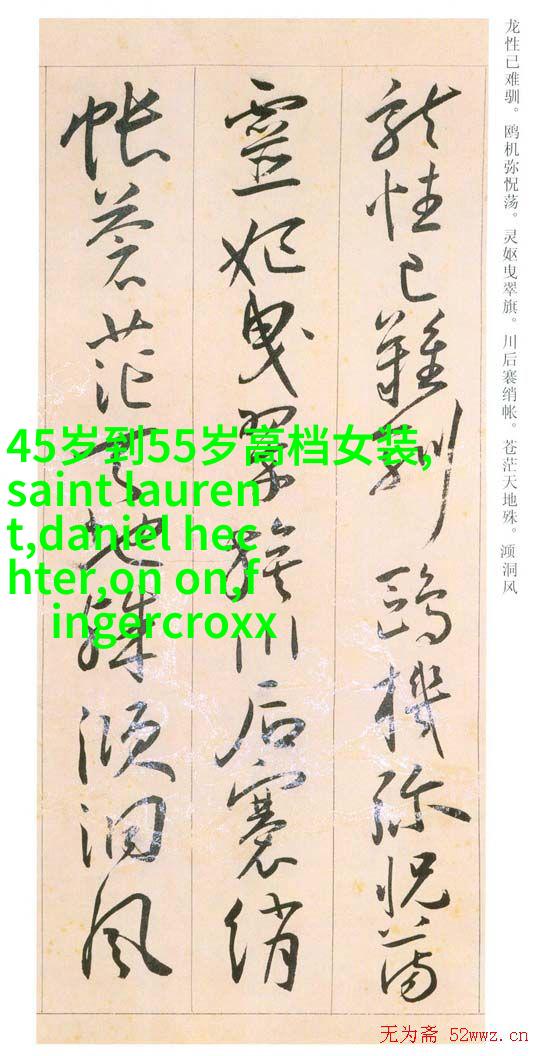 龙性已难驯。鸥机弥怳荡。灵妪曳翠旗。川后褰绡帐。苍茫天地殊。澒洞风
龍性已難馴鷗機弥怳蕩
靈妃曳翠旗川后褰绡
帐蒼茫天地殊澒洞風
45岁到55岁高档女装,
saint lauren
t,daniel hec
hter,on on,f
ingercroxx
无为斋 52wwz.cn